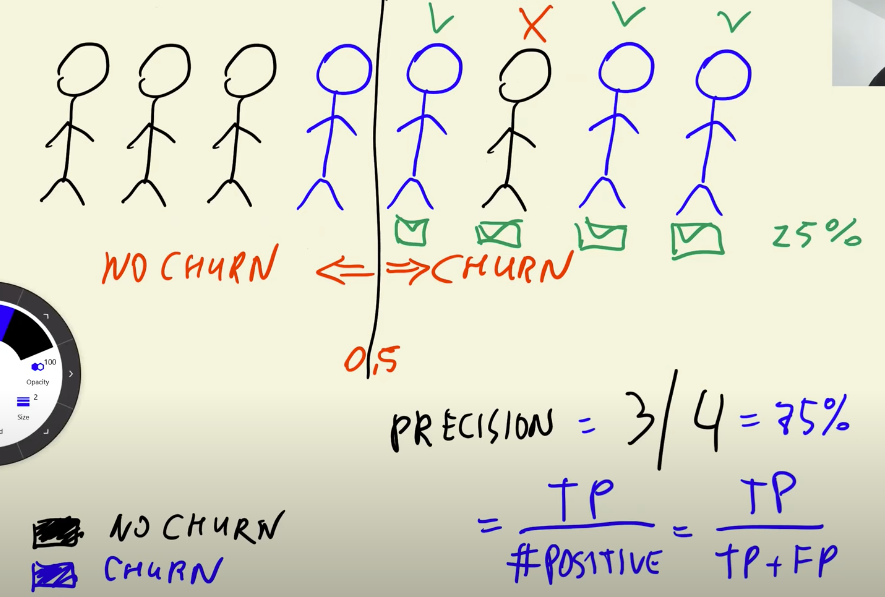 25%
NO CHURN ⇐ ⇒ CHURN
0,5
100
Opacity
2
Size
PRECISION = 3/4 = 75%
= TP / #POSITIVE = TP / TP + FP
NO CHURN
CHURN